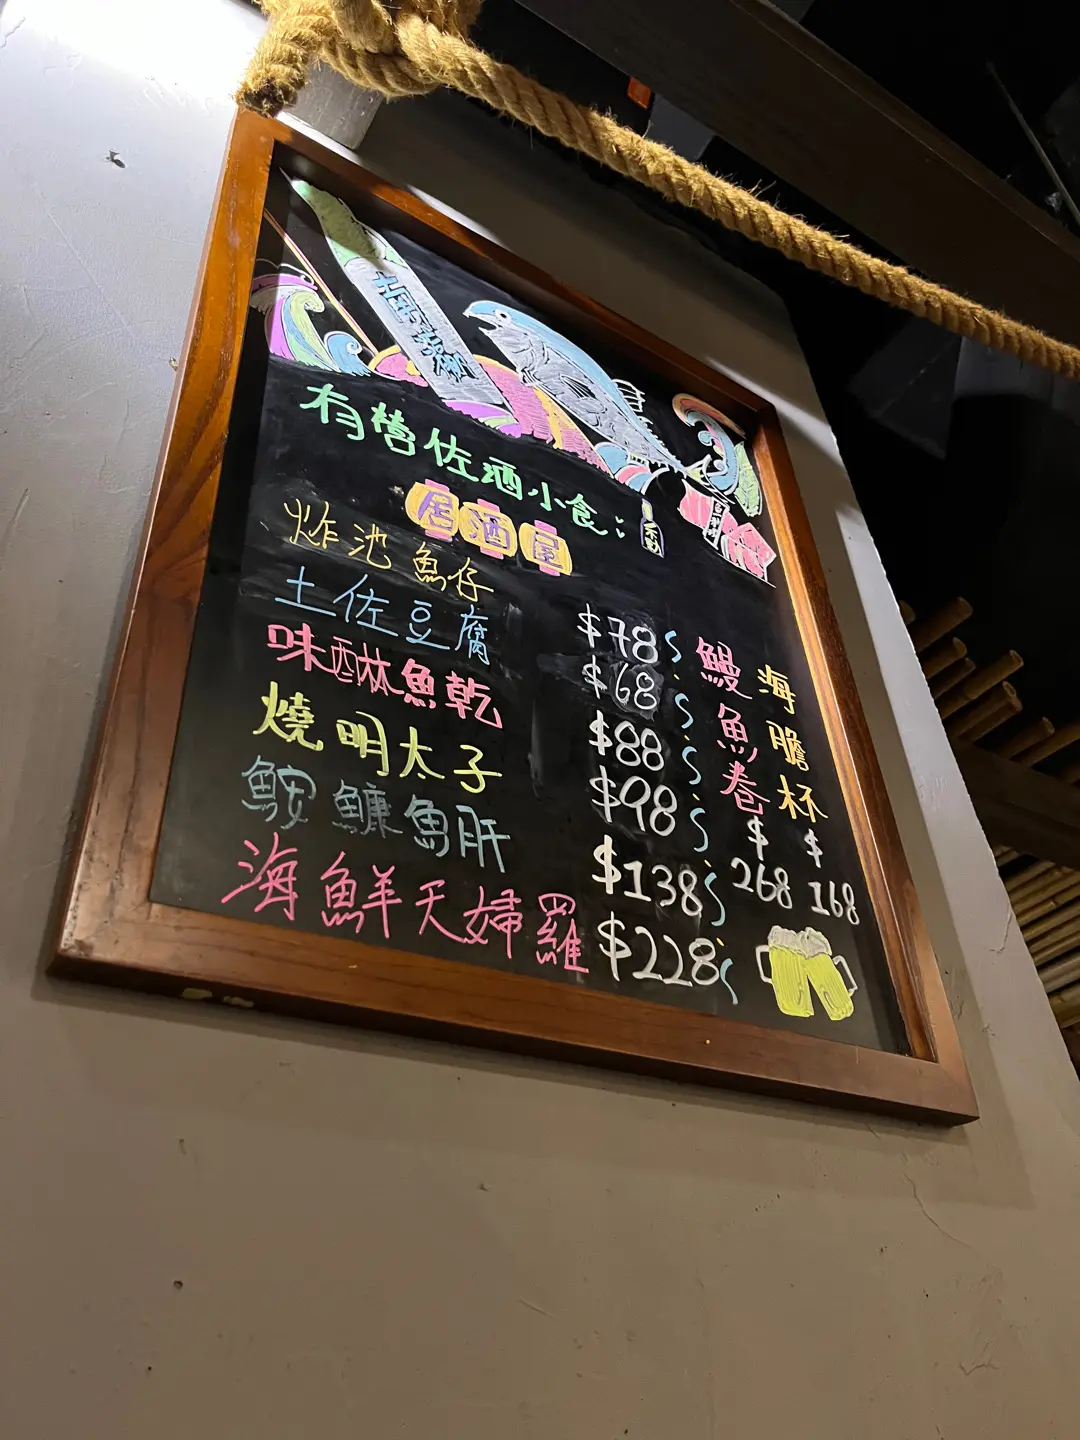 有營佐酒小食:
居酒屋
炸池魚仔 $78
土佐豆腐 $68
味醂魚乾 $88
燒明太子 $98
鮟鱇魚肝 $138
海鮮天婦羅 $228
海膽杯 $168
鰻魚卷 $268